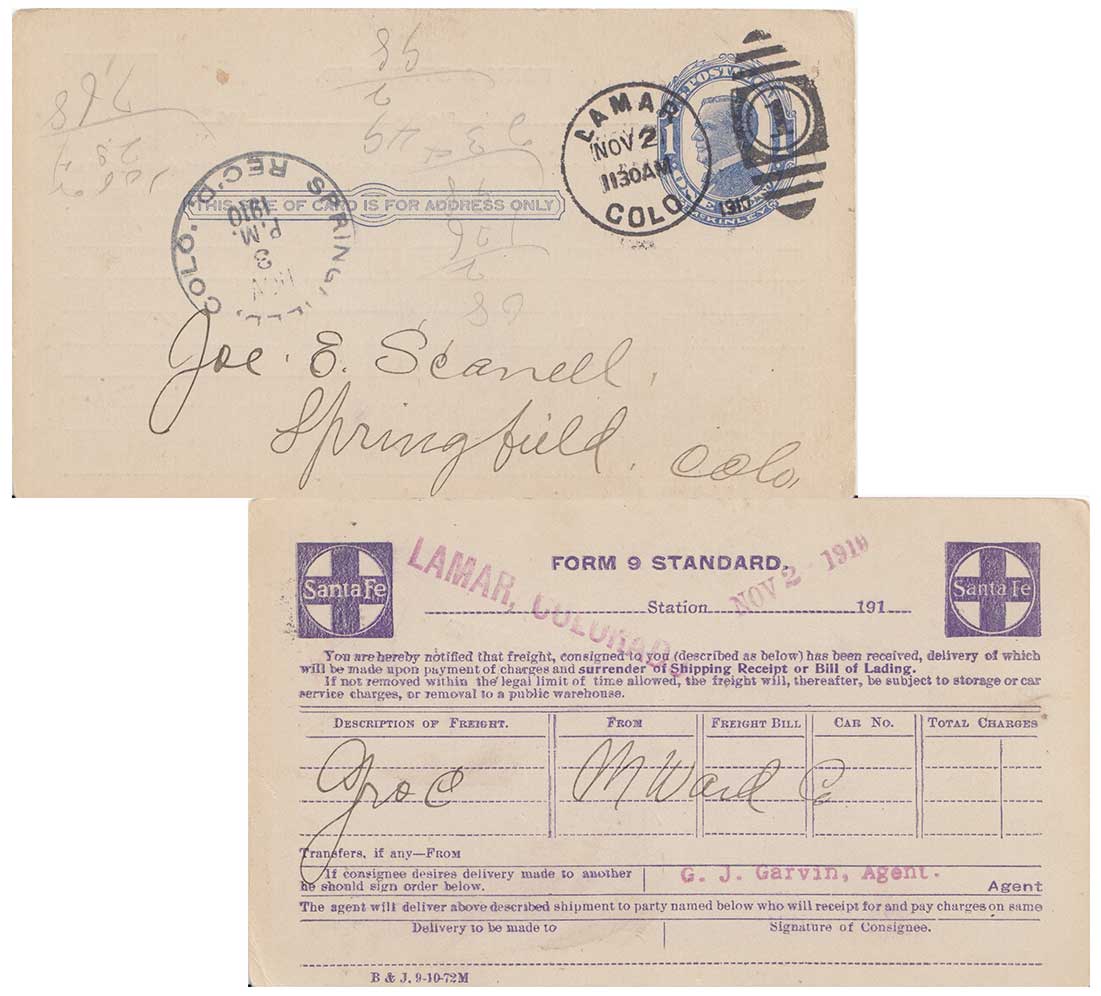 98
2
49
768
3
28
2
LAMAR
NOV 2
1130AM
COLO.
1910
POSTAL
1 1
ONE
McKINLEY
1
THIS SIDE OF CARD IS FOR ADDRESS ONLY
SPRINGFIELD, COLO.
REC'D.
NOV
3
P.M.
1910
Joe. E. Scanell,
Springfield, Colo,
Santa Fe
LAMAR, COLORADO
FORM 9 STANDARD.
NOV 2 - 1910
Santa Fe
Station 191
You are hereby notified that freight, consigned to you (described as below) has been received, delivery of which
will be made upon payment of charges and surrender of Shipping Receipt or Bill of Lading.
If not removed within the legal limit of time allowed, the freight will, thereafter, be subject to storage or car
service charges, or removal to a public warehouse.
DESCRIPTION OF FREIGHT. FROM FREIGHT BILL CAR NO. TOTAL CHARGES
Groc M Ward Co
Transfers, if any—FROM
If consignee desires delivery made to another
he should sign order below.
G. J. Garvin, Agent.
Agent
The agent will deliver above described shipment to party named below who will receipt for and pay charges on same
Delivery to be made to Signature of Consignee.
B & J, 9-10-72M